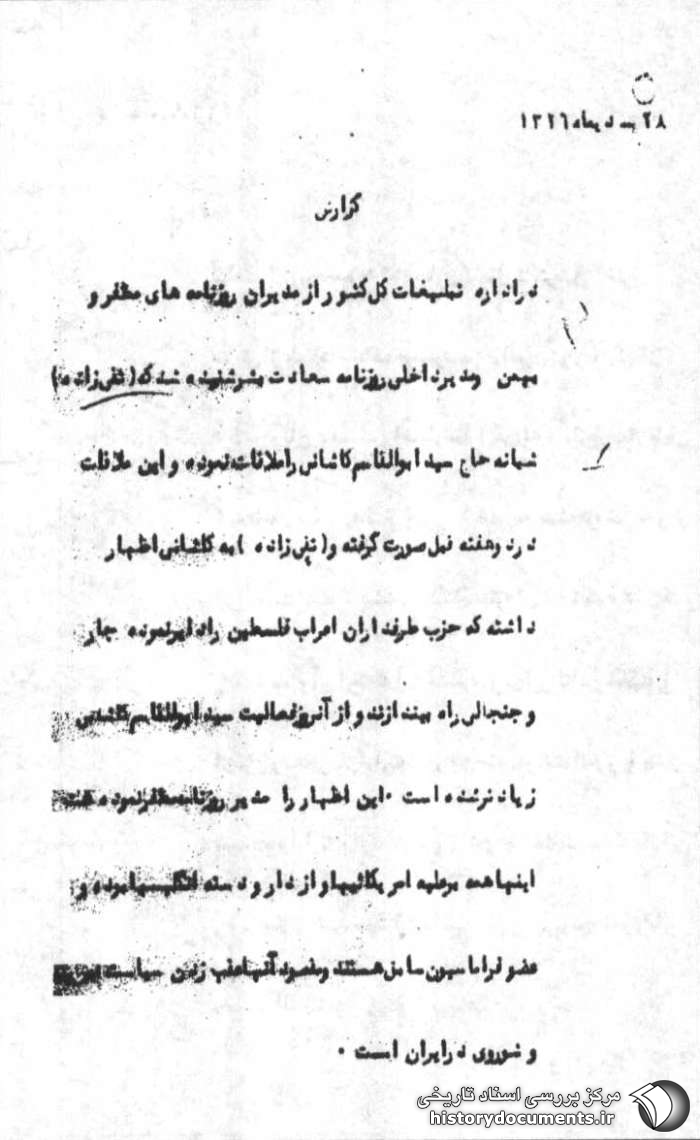 ۲۸ دیماه ۱۳۲۶
گزارش
در اداره تبلیغات کل کشور از مدیران روزنامه های مظفر و
میهن ومدیر داخلی روزنامه سعادت بشر شنیده شد که (تقی زاده)
شبانه حاج سید ابوالقاسم کاشانی را ملاقات نموده و این ملاقات
در دوهفته قبل صورت گرفته و (تقی زاده) به کاشانی اظهار
داشته که حزب طرفداران اعراب فلسطین را دایر نموده جار
و جنجالی راه بیندازند و از آنروز فعالیت سید ابوالقاسم کاشانی
زیادتر شده است . این اظهار را مدیر روزنامه مظفر نموده
اینها همه برعلیه امریکائیها و از دار و دسته انگلیسها بوده و
عضو فراماسیون هستند ومقصود آنها عقب زدن سیاست
و شوروی در ایران است .
مرکز بررسی اسناد تاریخی
historydocuments.ir